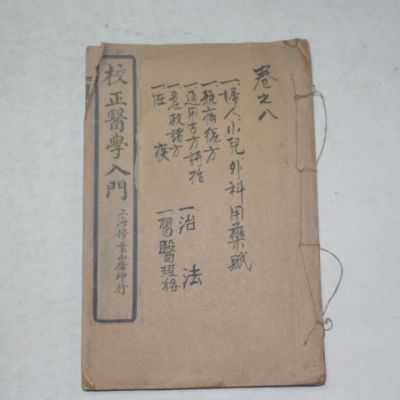 卷之八
一婦人小兒外科用藥賦
一雜病方
一通用古方詩括
一急救諸方
一怪疾
一治法
一習醫規格
校正醫學入門
上海掃葉山房印行